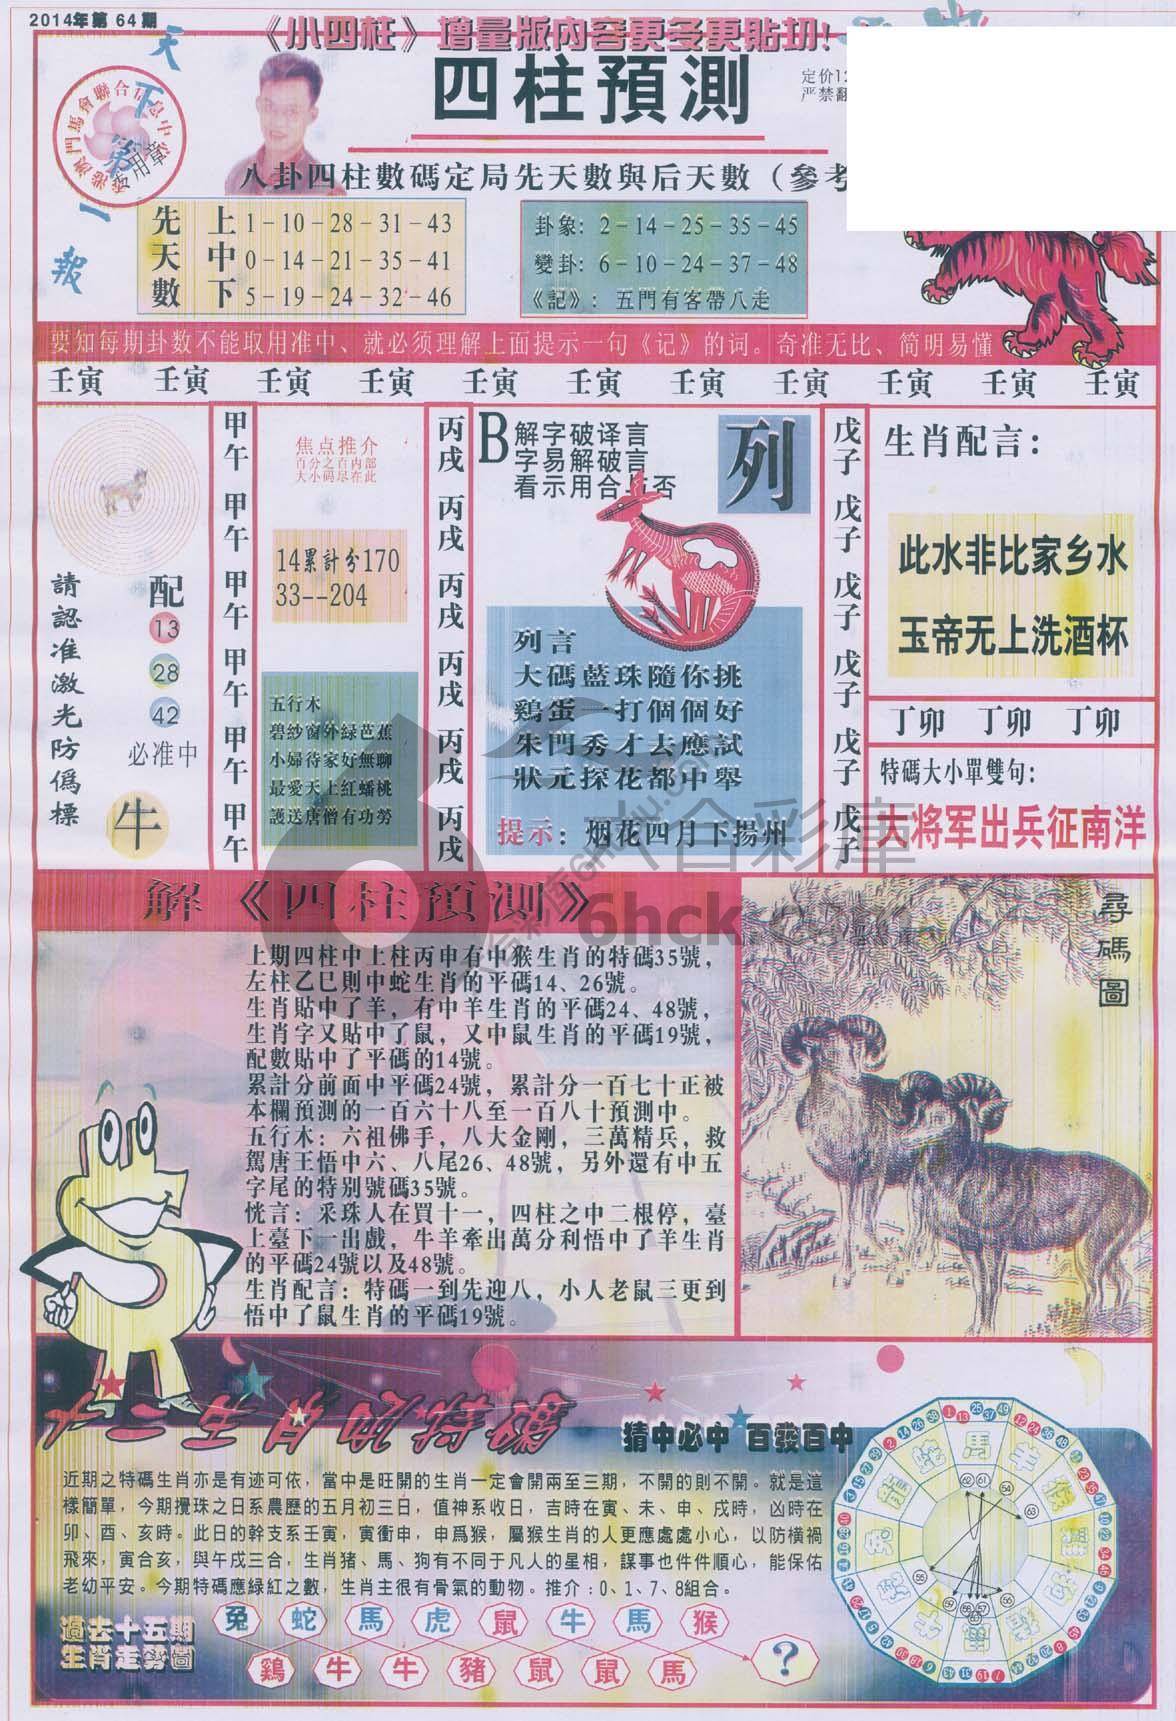 2014年第 64 期
《小四柱》增量版內容更多更貼切!
天下第一報
四柱預測
定价12
严禁翻
八卦四柱數碼定局先天數與后天數（參考
先天數
上 1-10-28-31-43
中 0-14-21-35-41
下 5-19-24-32-46
卦象: 2-14-25-35-45
變卦: 6-10-24-37-48
《記》: 五門有客帶八走
要知每期卦数不能取用准中、就必须理解上面提示一句《记》的词。奇准无比、简明易懂
壬寅 壬寅 壬寅 壬寅 壬寅 壬寅 壬寅 壬寅 壬寅 壬寅 壬寅
請認准激光防僞標
配
13
28
42
必准中
牛
甲午 甲午 甲午 甲午 甲午 甲午
焦点推介
百分之百内部
大小码尽在此
14累計分170
33--204
五行木
碧紗窗外緑芭蕉
小婦待家好無聊
最愛天上紅蟠桃
護送唐僧有功勞
丙戌 丙戌 丙戌 丙戌 丙戌 丙戌
B 解字破译言
字易解破言
看示用合与否
列
列言
大碼藍珠隨你挑
鷄蛋一打個個好
朱門秀才去應試
狀元探花都中舉
提示: 烟花四月下揚州
戊子 戊子 戊子 戊子 戊子 戊子
生肖配言:
此水非比家乡水
玉帝无上洗酒杯
丁卯 丁卯 丁卯
特碼大小單雙句:
大将军出兵征南洋
六合彩库
6hck.com
解《四柱預測》
上期四柱中上柱丙申有中猴生肖的特碼35號，
左柱乙巳則中蛇生肖的平碼14、26號。
生肖貼中了羊，有中羊生肖的平碼24、48號，
生肖字又貼中了鼠，又中鼠生肖的平碼19號，
配數貼中了平碼的14號。
累計分前面中平碼24號，累計分一百七十正被
本欄預測的一百六十八至一百八十預測中。
五行木: 六祖佛手，八大金剛，三萬精兵，救
駕唐王悟中六、八尾26、48號，另外還有中五
字尾的特别號碼35號。
恍言: 采珠人在買十一，四柱之中二根停，臺
上臺下一出戲，牛羊牽出萬分利悟中了羊生肖
的平碼24號以及48號。
生肖配言: 特碼一到先迎八，小人老鼠三更到
悟中了鼠生肖的平碼19號。
尋碼圖
猜中必中 百發百中
近期之特碼生肖亦是有迹可依，當中是旺開的生肖一定會開兩至三期，不開的則不開。就是這
樣簡單，今期攪珠之日系農歷的五月初三日，值神系收日，吉時在寅、未、申、戌時，凶時在
卯、酉、亥時。此日的幹支系壬寅，寅衝申，申爲猴，屬猴生肖的人更應處處小心，以防横禍
飛來，寅合亥，與午戌三合，生肖猪、馬、狗有不同于凡人的星相，謀事也件件順心，能保佑
老幼平安。今期特碼應緑紅之數，生肖主很有骨氣的動物。推介:0、1、7、8組合。
過去十五期
生肖走勢圖
兔 蛇 馬 虎 鼠 牛 馬 猴
鷄 牛 牛 豬 鼠 鼠 馬
?